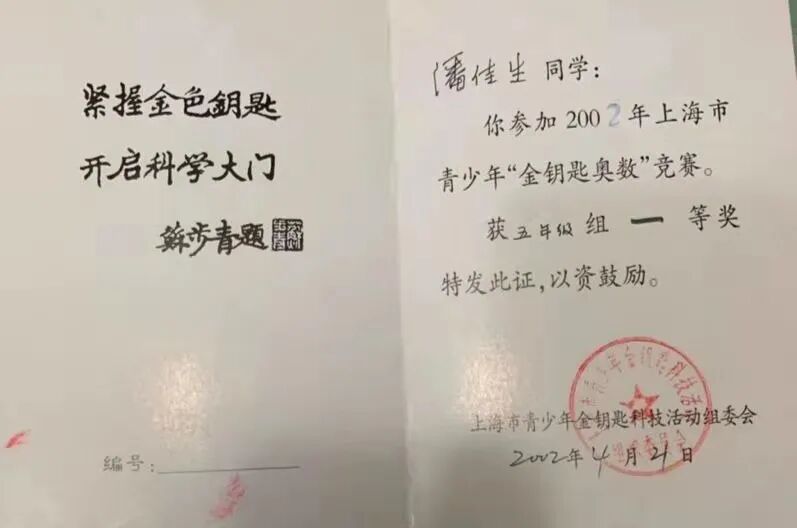 紧握金色钥匙
开启科学大门
苏步青题
编号:
潘佳生 同学:
你参加2002年上海市
青少年“金钥匙奥数”竞赛。
获五年级组 一 等奖
特发此证,以资鼓励。
上海市青少年金钥匙科技活动组委会
2002年4月21日